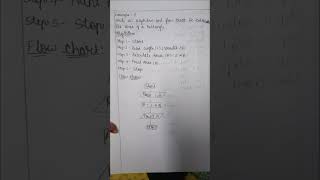 step 4- Print
step 5- Stop
Flow Chart:
Example - 2
Write an algorithm and flow chart to calculate
the area of a rectangle.
Algorithm
step 1 - Start
step 2 - Read length (L), breadth (B)
step 3 - Calculate Area (A) = L × B
step 4 - Print Area (A)
step 5 - Stop
Flow Chart
Start
Read L, B
A = L × B
Print A
Stop